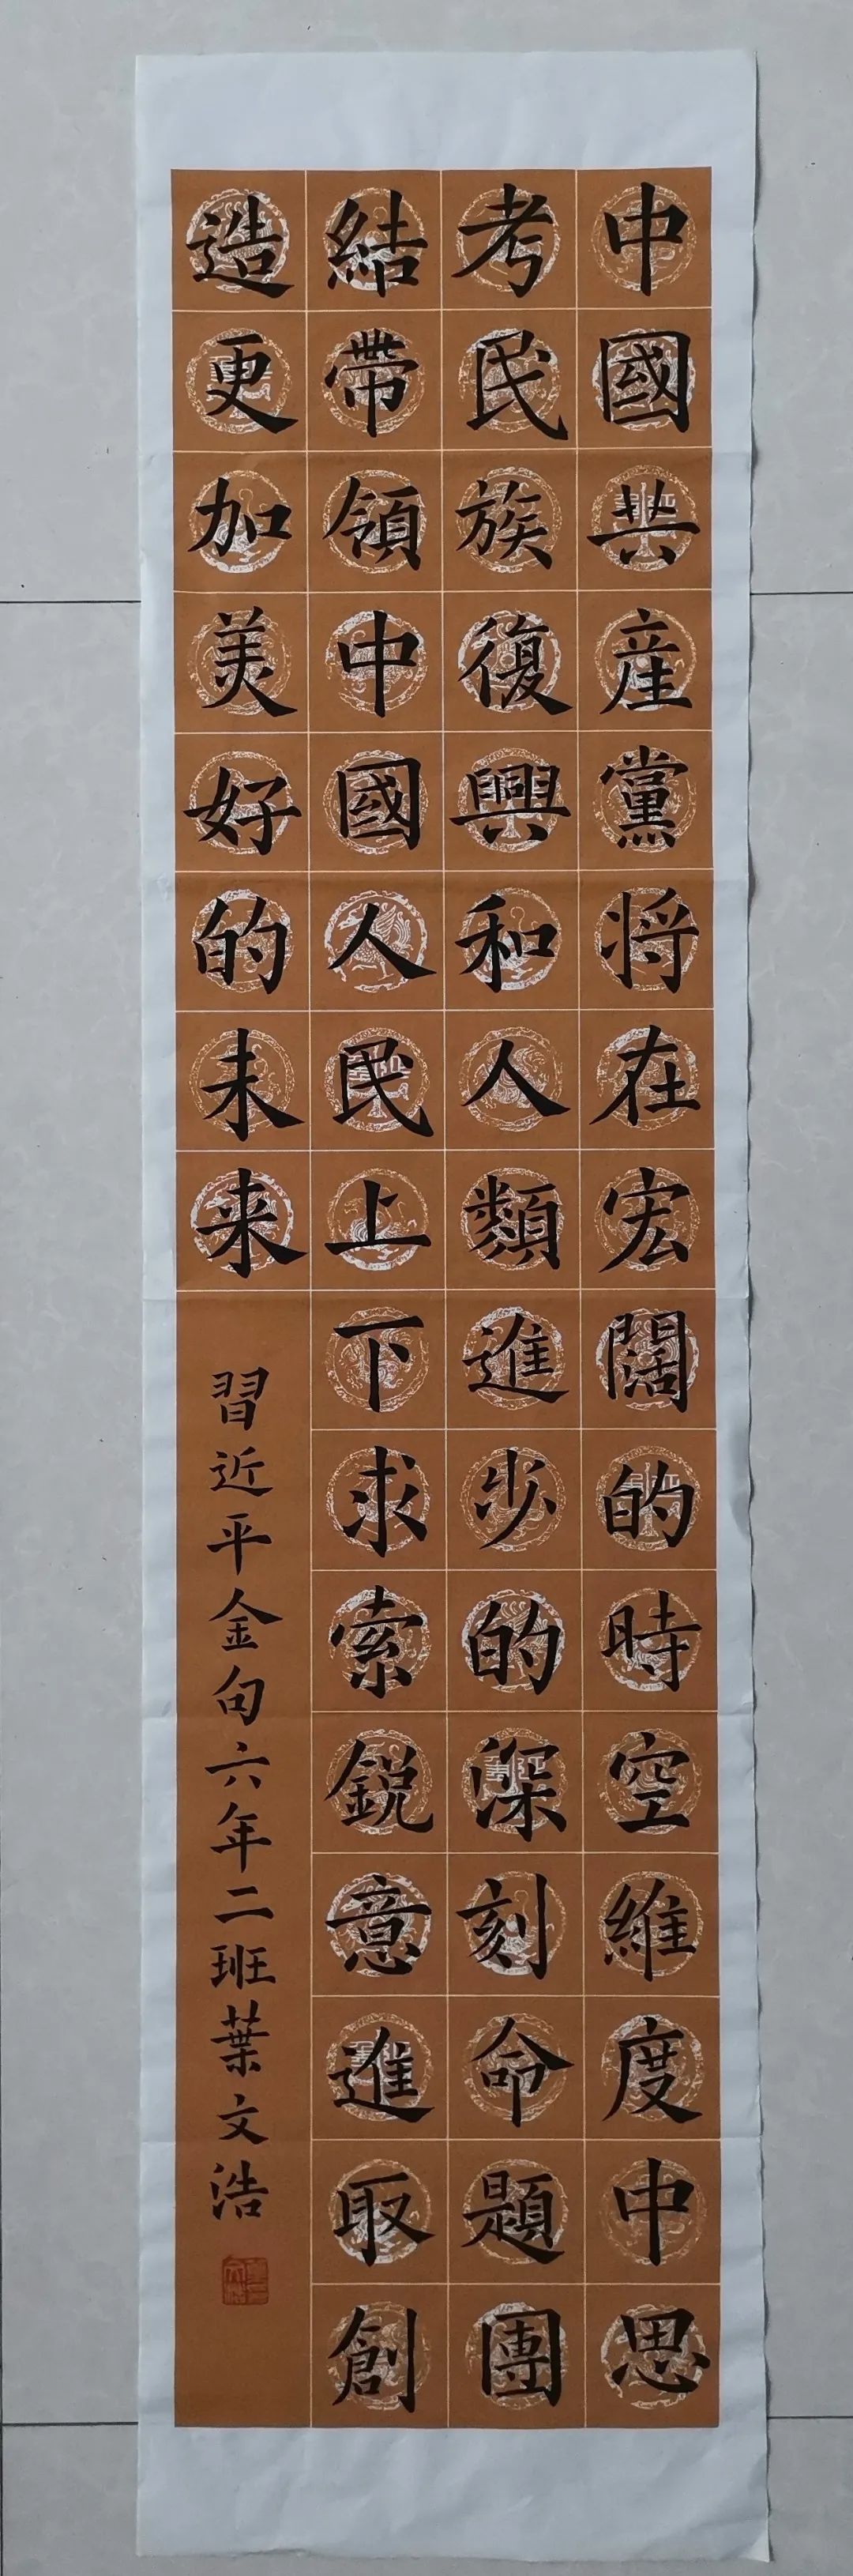 中國共産黨将在宏闊的時空維度中思
考民族復興和人類進步的深刻命題團
結帶領中國人民上下求索鋭意進取創
造更加美好的未来
習近平金句六年二班葉文浩